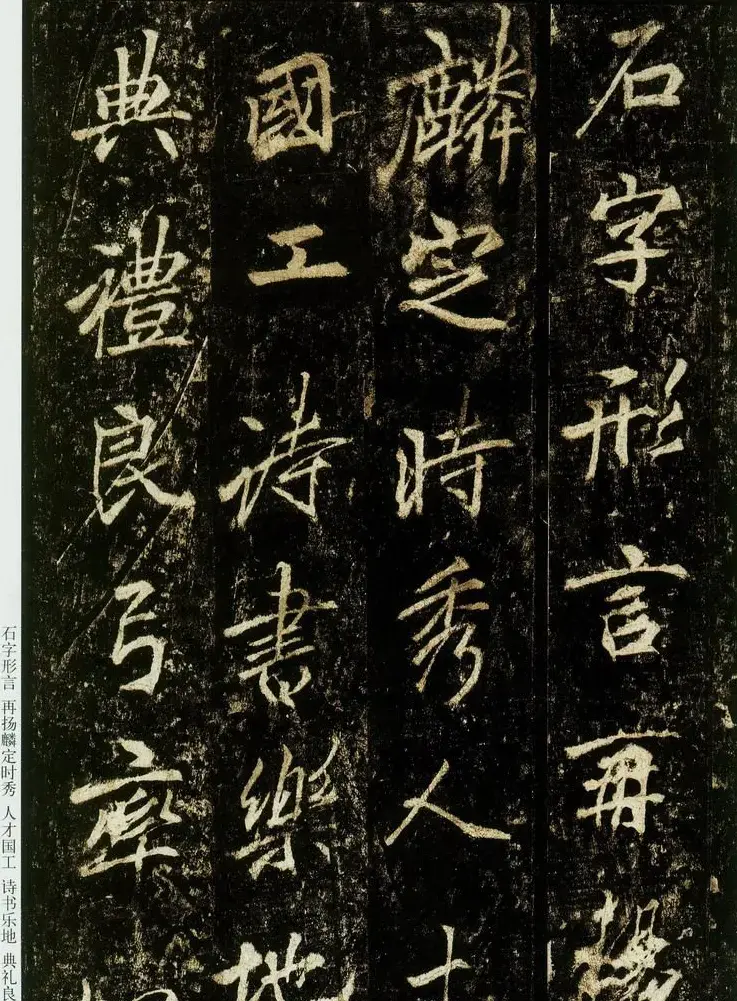 石字形言再揚
麟定時秀人才
國工詩書樂地
典禮良弓率
石字形言 再扬麟定时秀 人才国工 诗书乐地 典礼良